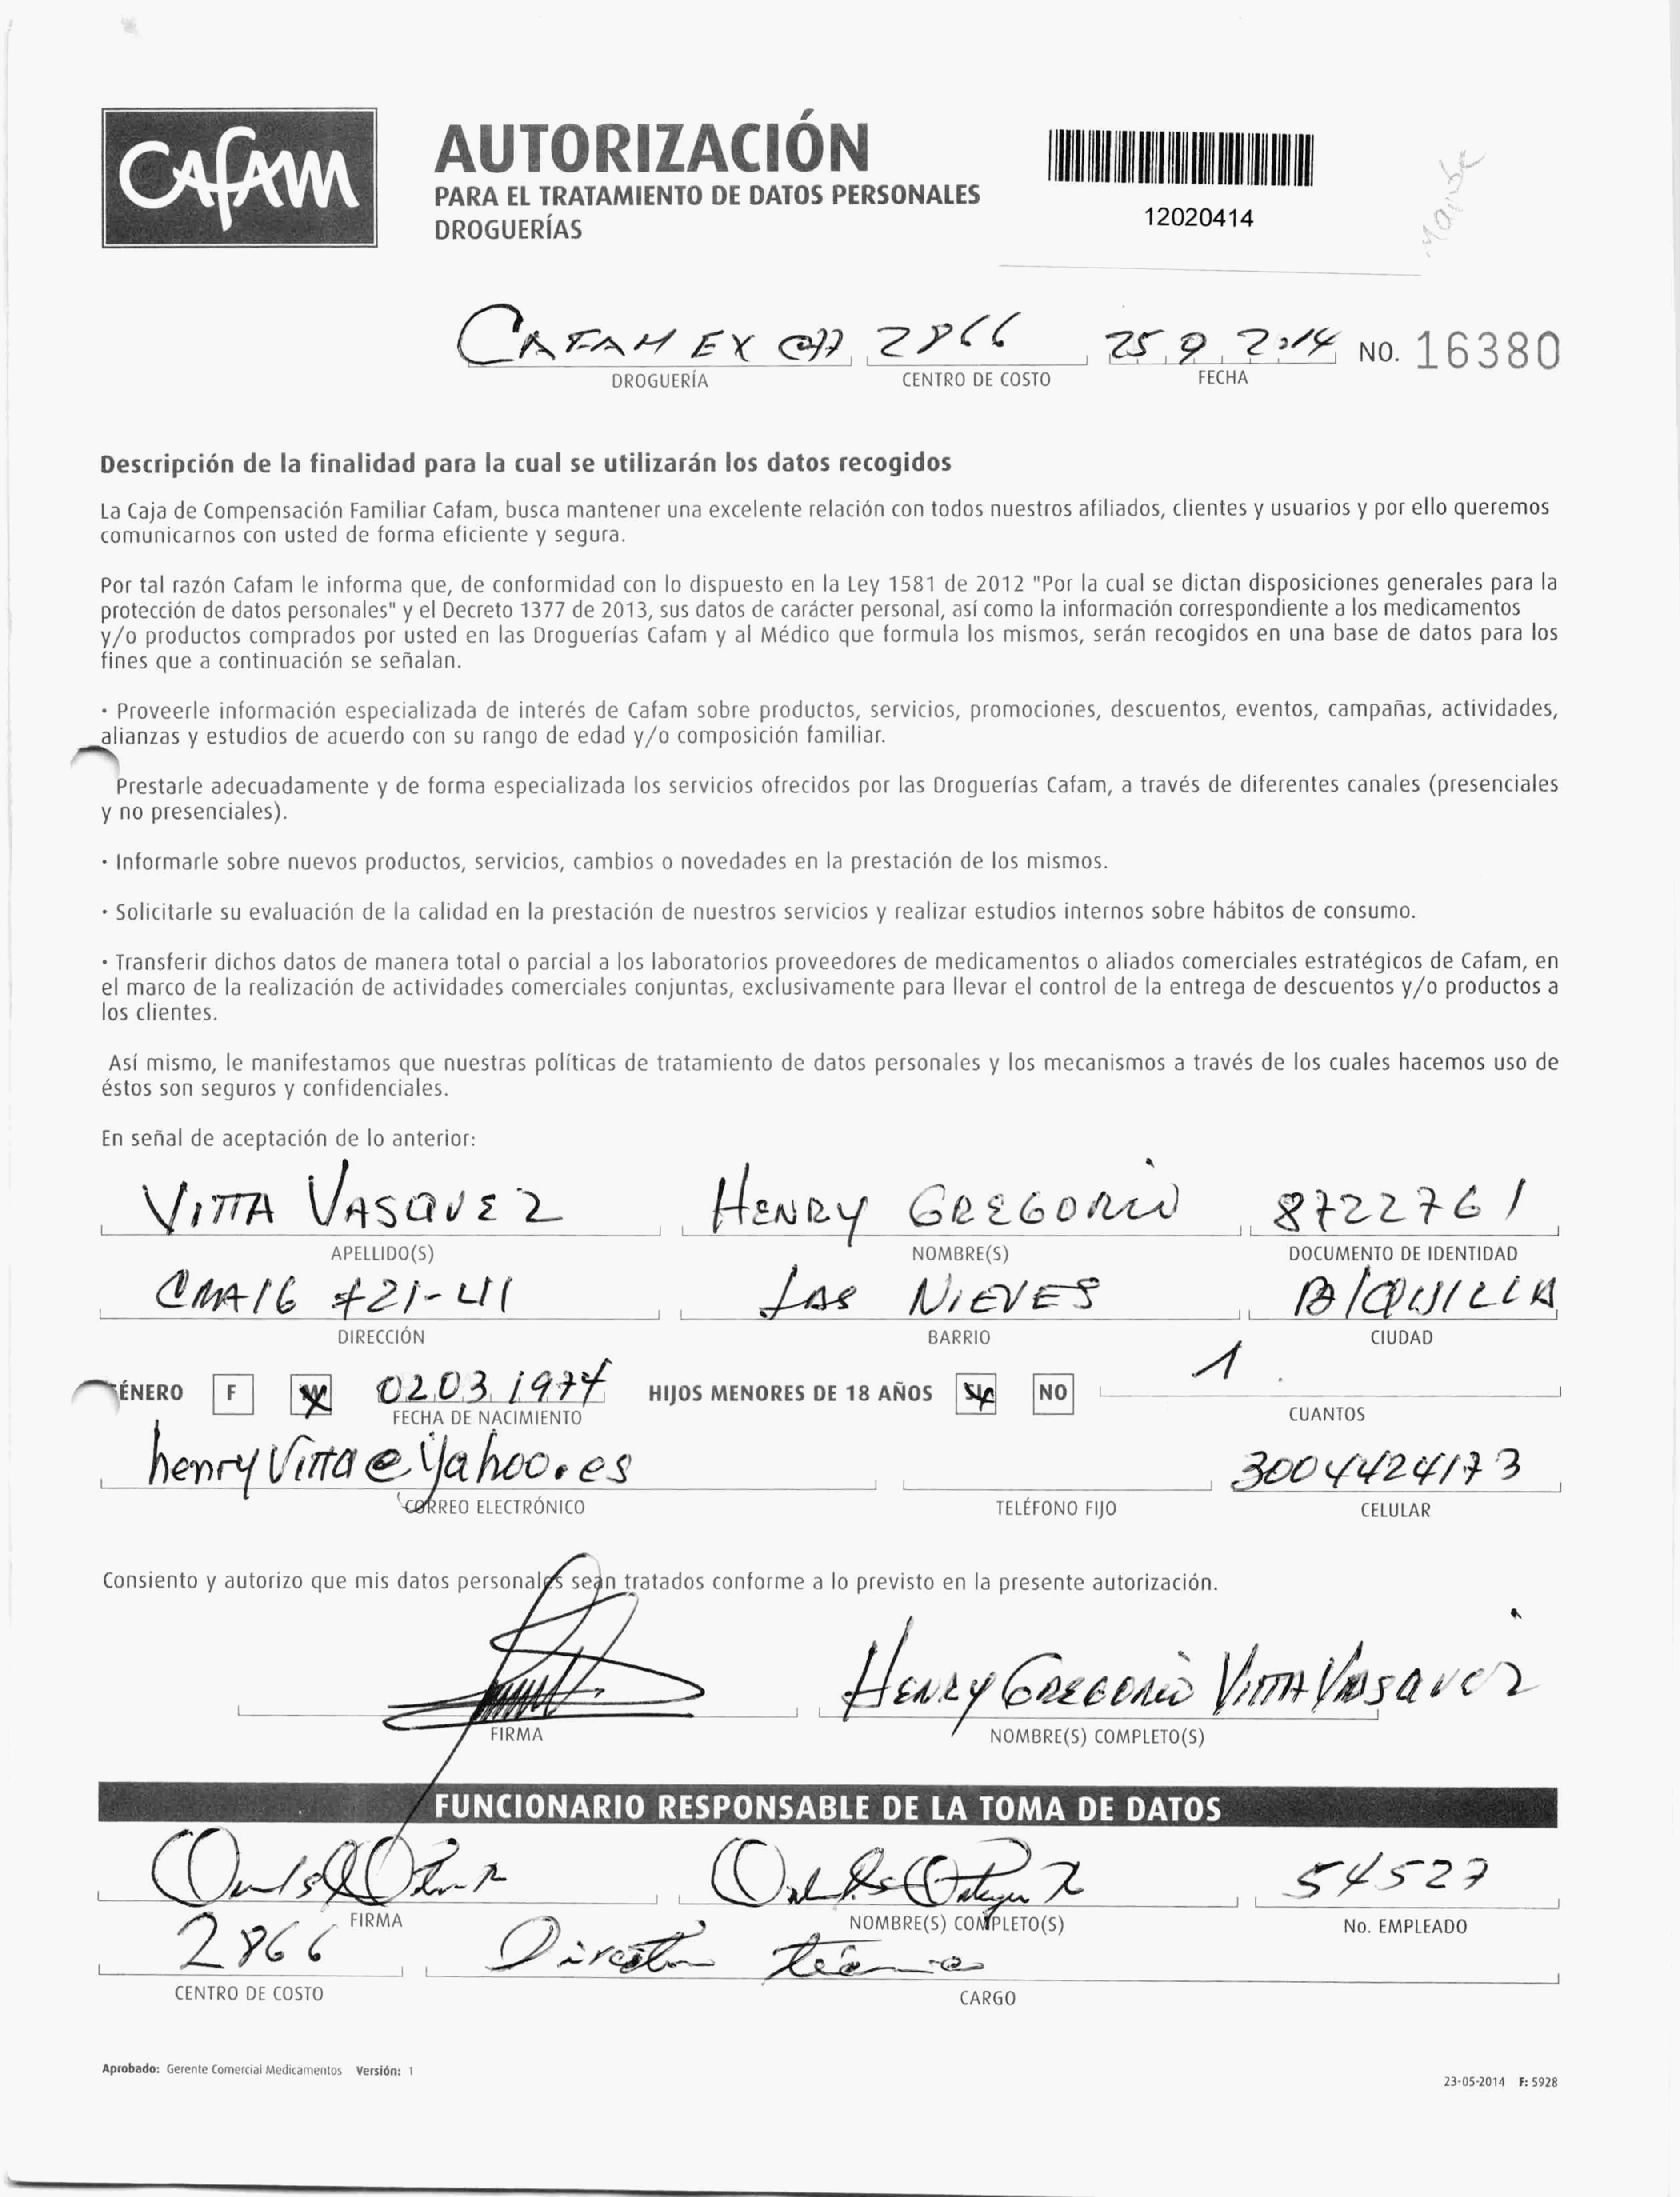 Cafam
AUTORIZACIÓN
PARA EL TRATAMIENTO DE DATOS PERSONALES
DROGUERÍAS
12020414
CAFAM EX 2866 25 9 2014 NO. 16380
DROGUERÍA CENTRO DE COSTO FECHA
Descripción de la finalidad para la cual se utilizarán los datos recogidos
La Caja de Compensación Familiar Cafam, busca mantener una excelente relación con todos nuestros afiliados, clientes y usuarios y por ello queremos
comunicarnos con usted de forma eficiente y segura.
Por tal razón Cafam le informa que, de conformidad con lo dispuesto en la Ley 1581 de 2012 "Por la cual se dictan disposiciones generales para la
protección de datos personales" y el Decreto 1377 de 2013, sus datos de carácter personal, así como la información correspondiente a los medicamentos
y/o productos comprados por usted en las Droguerías Cafam y al Médico que formula los mismos, serán recogidos en una base de datos para los
fines que a continuación se señalan.
· Proveerle información especializada de interés de Cafam sobre productos, servicios, promociones, descuentos, eventos, campañas, actividades,
alianzas y estudios de acuerdo con su rango de edad y/o composición familiar.
Prestarle adecuadamente y de forma especializada los servicios ofrecidos por las Droguerías Cafam, a través de diferentes canales (presenciales
y no presenciales).
· Informarle sobre nuevos productos, servicios, cambios o novedades en la prestación de los mismos.
· Solicitarle su evaluación de la calidad en la prestación de nuestros servicios y realizar estudios internos sobre hábitos de consumo.
· Transferir dichos datos de manera total o parcial a los laboratorios proveedores de medicamentos o aliados comerciales estratégicos de Cafam, en
el marco de la realización de actividades comerciales conjuntas, exclusivamente para llevar el control de la entrega de descuentos y/o productos a
los clientes.
Así mismo, le manifestamos que nuestras políticas de tratamiento de datos personales y los mecanismos a través de los cuales hacemos uso de
éstos son seguros y confidenciales.
En señal de aceptación de lo anterior:
VITTA VASQUEZ HENRY GREGORIO 8722761
APELLIDO(S) NOMBRE(S) DOCUMENTO DE IDENTIDAD
#21-41 LAS NIEVES B/QUILLA
DIRECCIÓN BARRIO CIUDAD
GÉNERO F M 02 03 1974 HIJOS MENORES DE 18 AÑOS SI NO 1
FECHA DE NACIMIENTO CUANTOS
henryvitta@yahoo.es 3004424173
CORREO ELECTRÓNICO TELÉFONO FIJO CELULAR
Consiento y autorizo que mis datos personales sean tratados conforme a lo previsto en la presente autorización.
HENRY GREGORIO VITTA VASQUEZ
FIRMA NOMBRE(S) COMPLETO(S)
FUNCIONARIO RESPONSABLE DE LA TOMA DE DATOS
54527
FIRMA NOMBRE(S) COMPLETO(S) No. EMPLEADO
2866 Director técnico
CENTRO DE COSTO CARGO
Aprobado: Gerente Comercial Medicamentos Versión: 1
23-05-2014 F: 5928